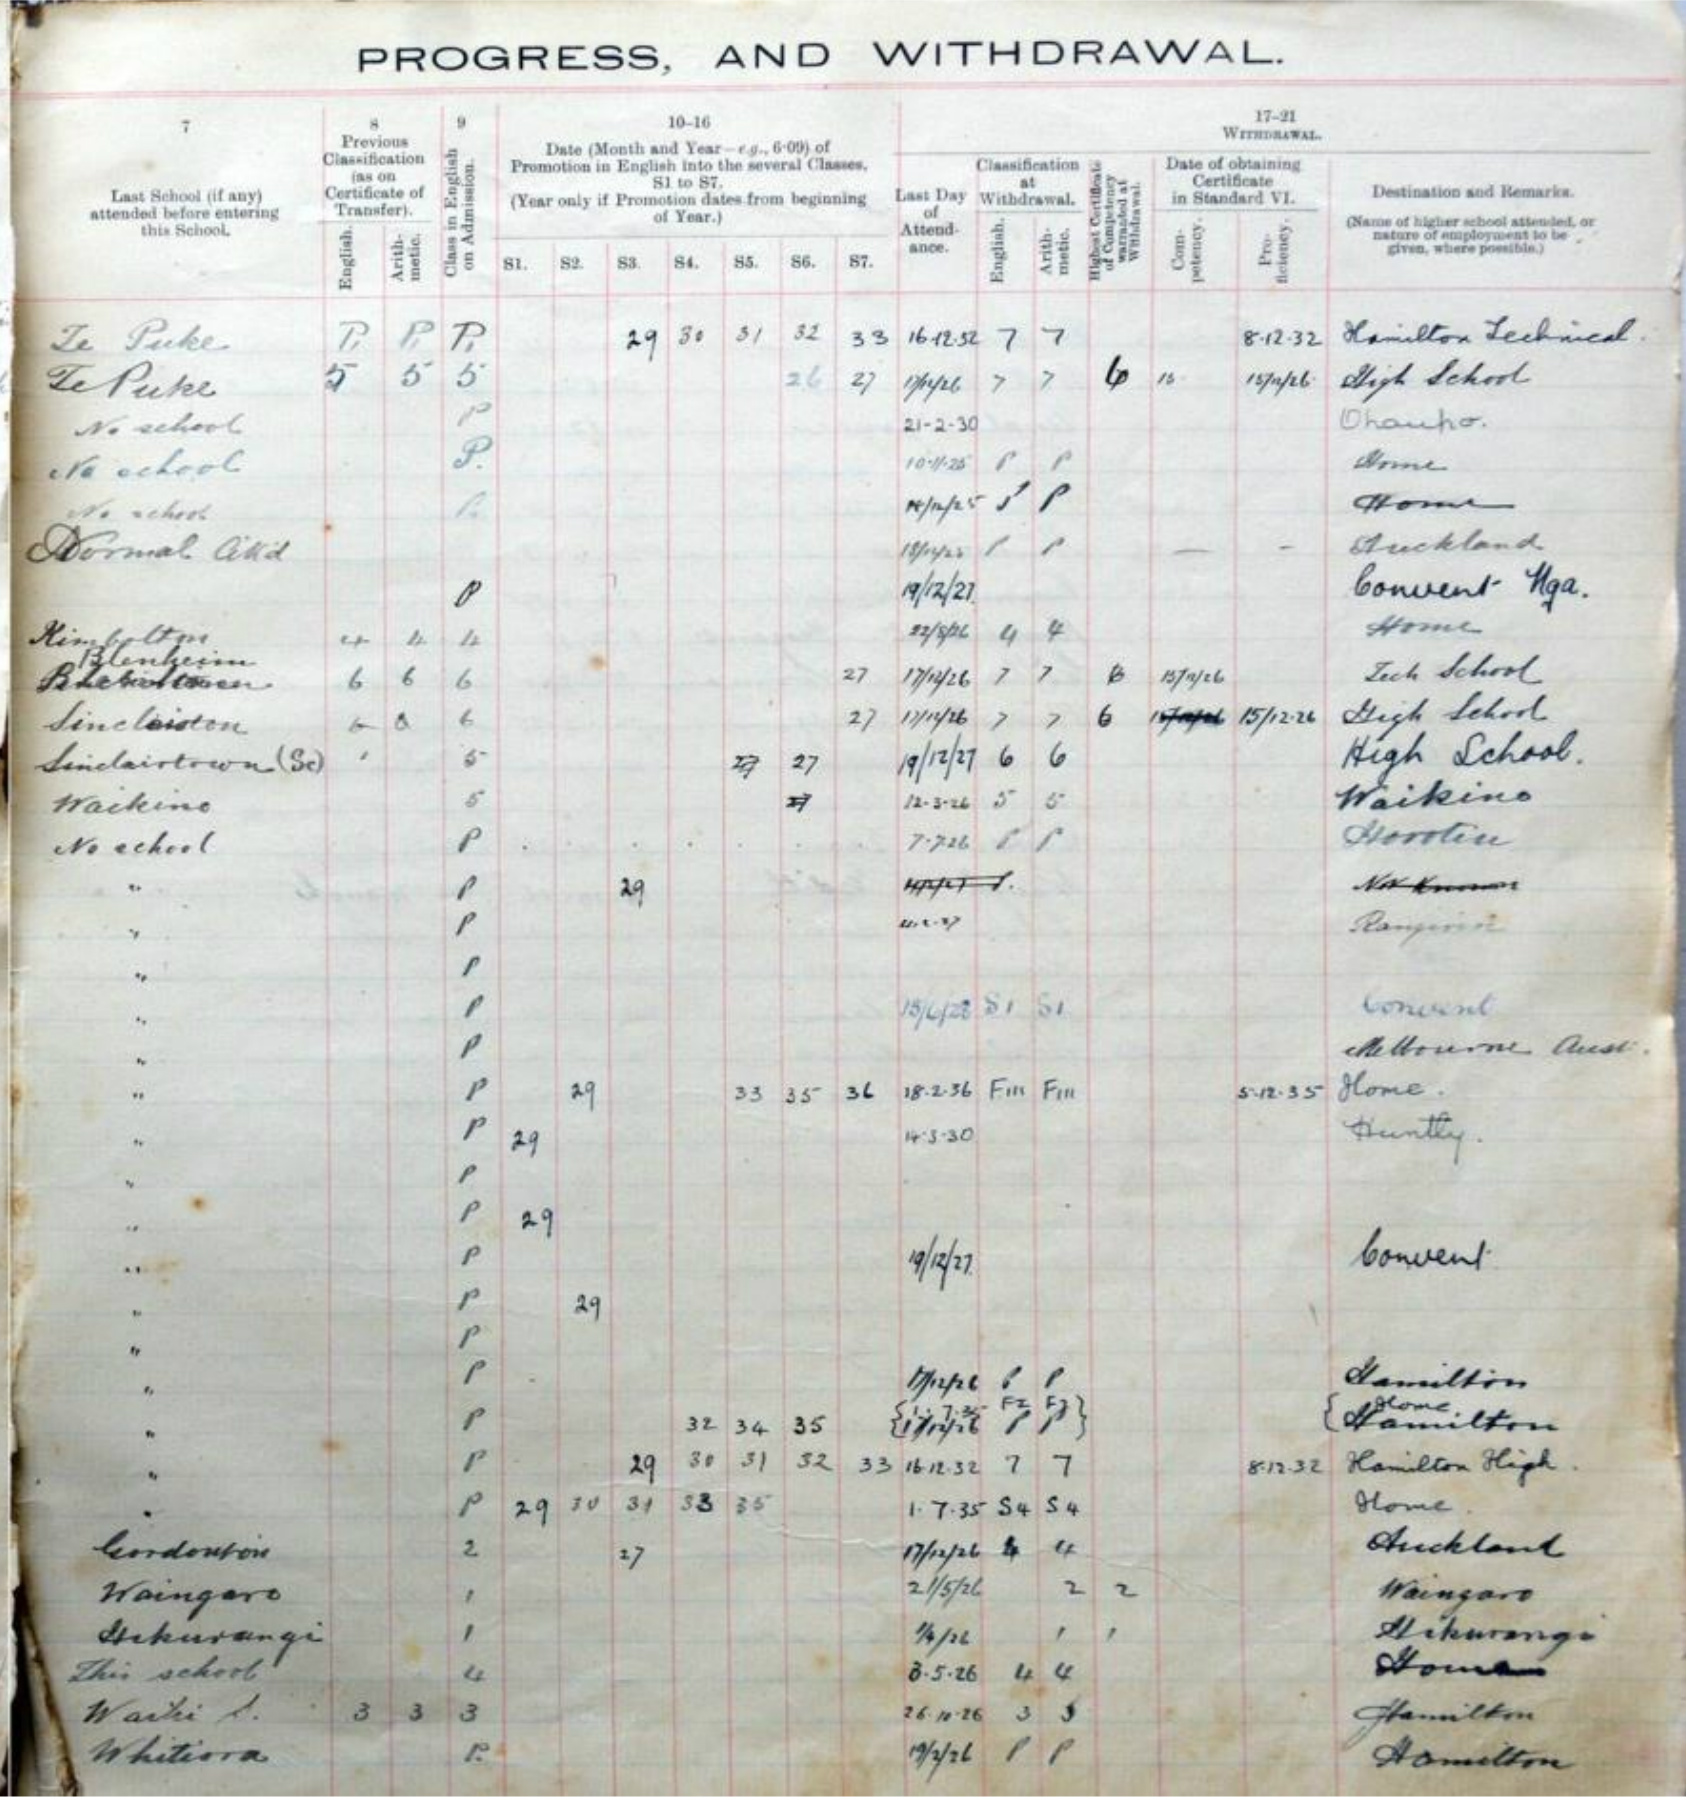 PROGRESS, AND WITHDRAWAL.
7
Last School (if any) attended before entering this School.
8
Previous Classification (as on Certificate of Transfer).
English.
Arith-metic.
9
Class in English on Admission.
10-16
Date (Month and Year—e.g., 6·09) of Promotion in English into the several Classes, S1 to S7.
(Year only if Promotion dates from beginning of Year.)
S1. S2. S3. S4. S5. S6. S7.
17-21
WITHDRAWAL.
Last Day of Attend-ance.
Classification at Withdrawal.
English.
Arith-metic.
Highest Certificate of Competency warranted at Withdrawal.
Date of obtaining Certificate in Standard VI.
Com-petency.
Pro-ficiency.
Destination and Remarks.
(Name of higher school attended, or nature of employment to be given, where possible.)
Te Puke P, P, P, 29 30 31 32 33 16·12·32 7 7 8·12·32 Hamilton Technical.
Te Puke 5 5 5 26 27 17/12/26 7 7 6 15 High School
No school P 21-2-30 Ohaupo.
No school P. 10·11·25 P P Home
No school P. P Home
Normal Ak'd P P — - Auckland
P 19/12/27 Convent Nga.
Kimbolton 4 4 4 4 4 Home
Blenheim 6 6 6 27 17/12/26 7 7 6 Tech School
Sinclairton 6 27 17/12/26 7 7 6 15/12·26 High School
Sinclairtown (Sc) 5 27 27 19/12/27 6 6 High School.
Waikino 5 27 12-3-26 5 5 Waikino
No school P 7·7·26 P P Horotiu
" P 29 Not Known
" P
" P
" P 15/6/28 S1 S1 Convent
" P Melbourne Aust.
" P 29 33 35 36 18·2·36 FIII FIII 5·12·35 Home.
" P 29 14·3·30 Huntly.
" P
" P 29
" P 19/12/27 Convent
" P 29
" P
" P 17/12/26 P P Hamilton
F2 Home
" P 32 34 35 17/12/26 P P Hamilton
" P 29 30 31 32 33 16·12·32 7 7 8·12·32 Hamilton High.
" P 29 30 31 33 35 1·7·35 S4 S4 Home.
Gordonton 2 27 17/12/26 4 4 Auckland
Waingaro 1 21/5/26 2 2 Waingaro
Hikurangi 1 1/4/26 1 1 Hikurangi
This school 4 3·5·26 4 4 Home
Waihi S. 3 3 3 26·10·26 3 3 Hamilton
Whitiora P. 19/2/26 P P Hamilton